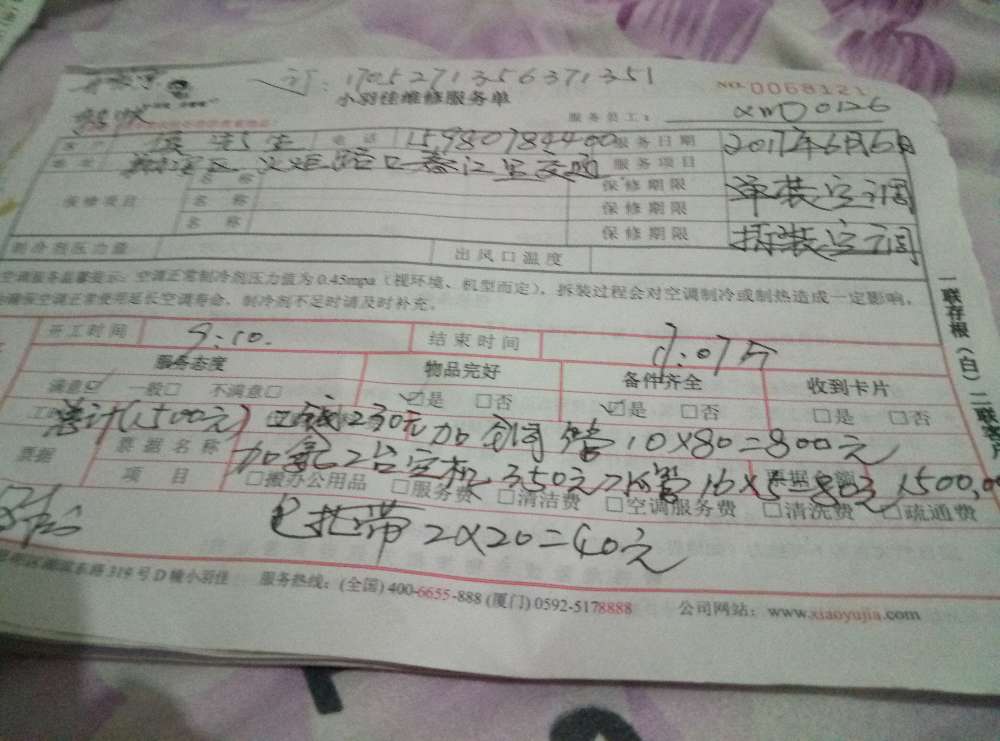 订：170527135637 1351
NO. 0068121
小羽佳维修服务单
服务员工： XWD0126
先生 电话 15980784400 服务日期 2017年6月6日
地址 路口 江里 服务项目
保修项目 名称 保修期限 拆装空调
名称 保修期限
名称 保修期限 拆装空调
制冷剂压力值 出风口温度
空调服务温馨提示：空调正常制冷剂压力值为0.45mpa（视环境、机型而定），拆装过程会对空调制冷或制热造成一定影响，
确保空调正常使用延长空调寿命，制冷剂不足时请及时补充。
开工时间 9:10. 结束时间
服务态度 物品完好 备件齐全 收到卡片
满意☑ 一般□ 不满意□ ☑是 □否 ☑是 □否 □是 □否
总计(1500元) 230元 加铜管10×80=800元
票据 票据名称 加氟2台空机350元 水管16×5=80元 票据金额 1500.00
项目 □搬办公用品 □服务费 □清洁费 □空调服务费 □清洗费 □疏通费
包扎带2×20=40元
东路319号D幢小羽佳 服务热线：(全国) 400-6655-888 (厦门) 0592-5178888 公司网站：www.xiaoyujia.com
一联存根（白）二联客户